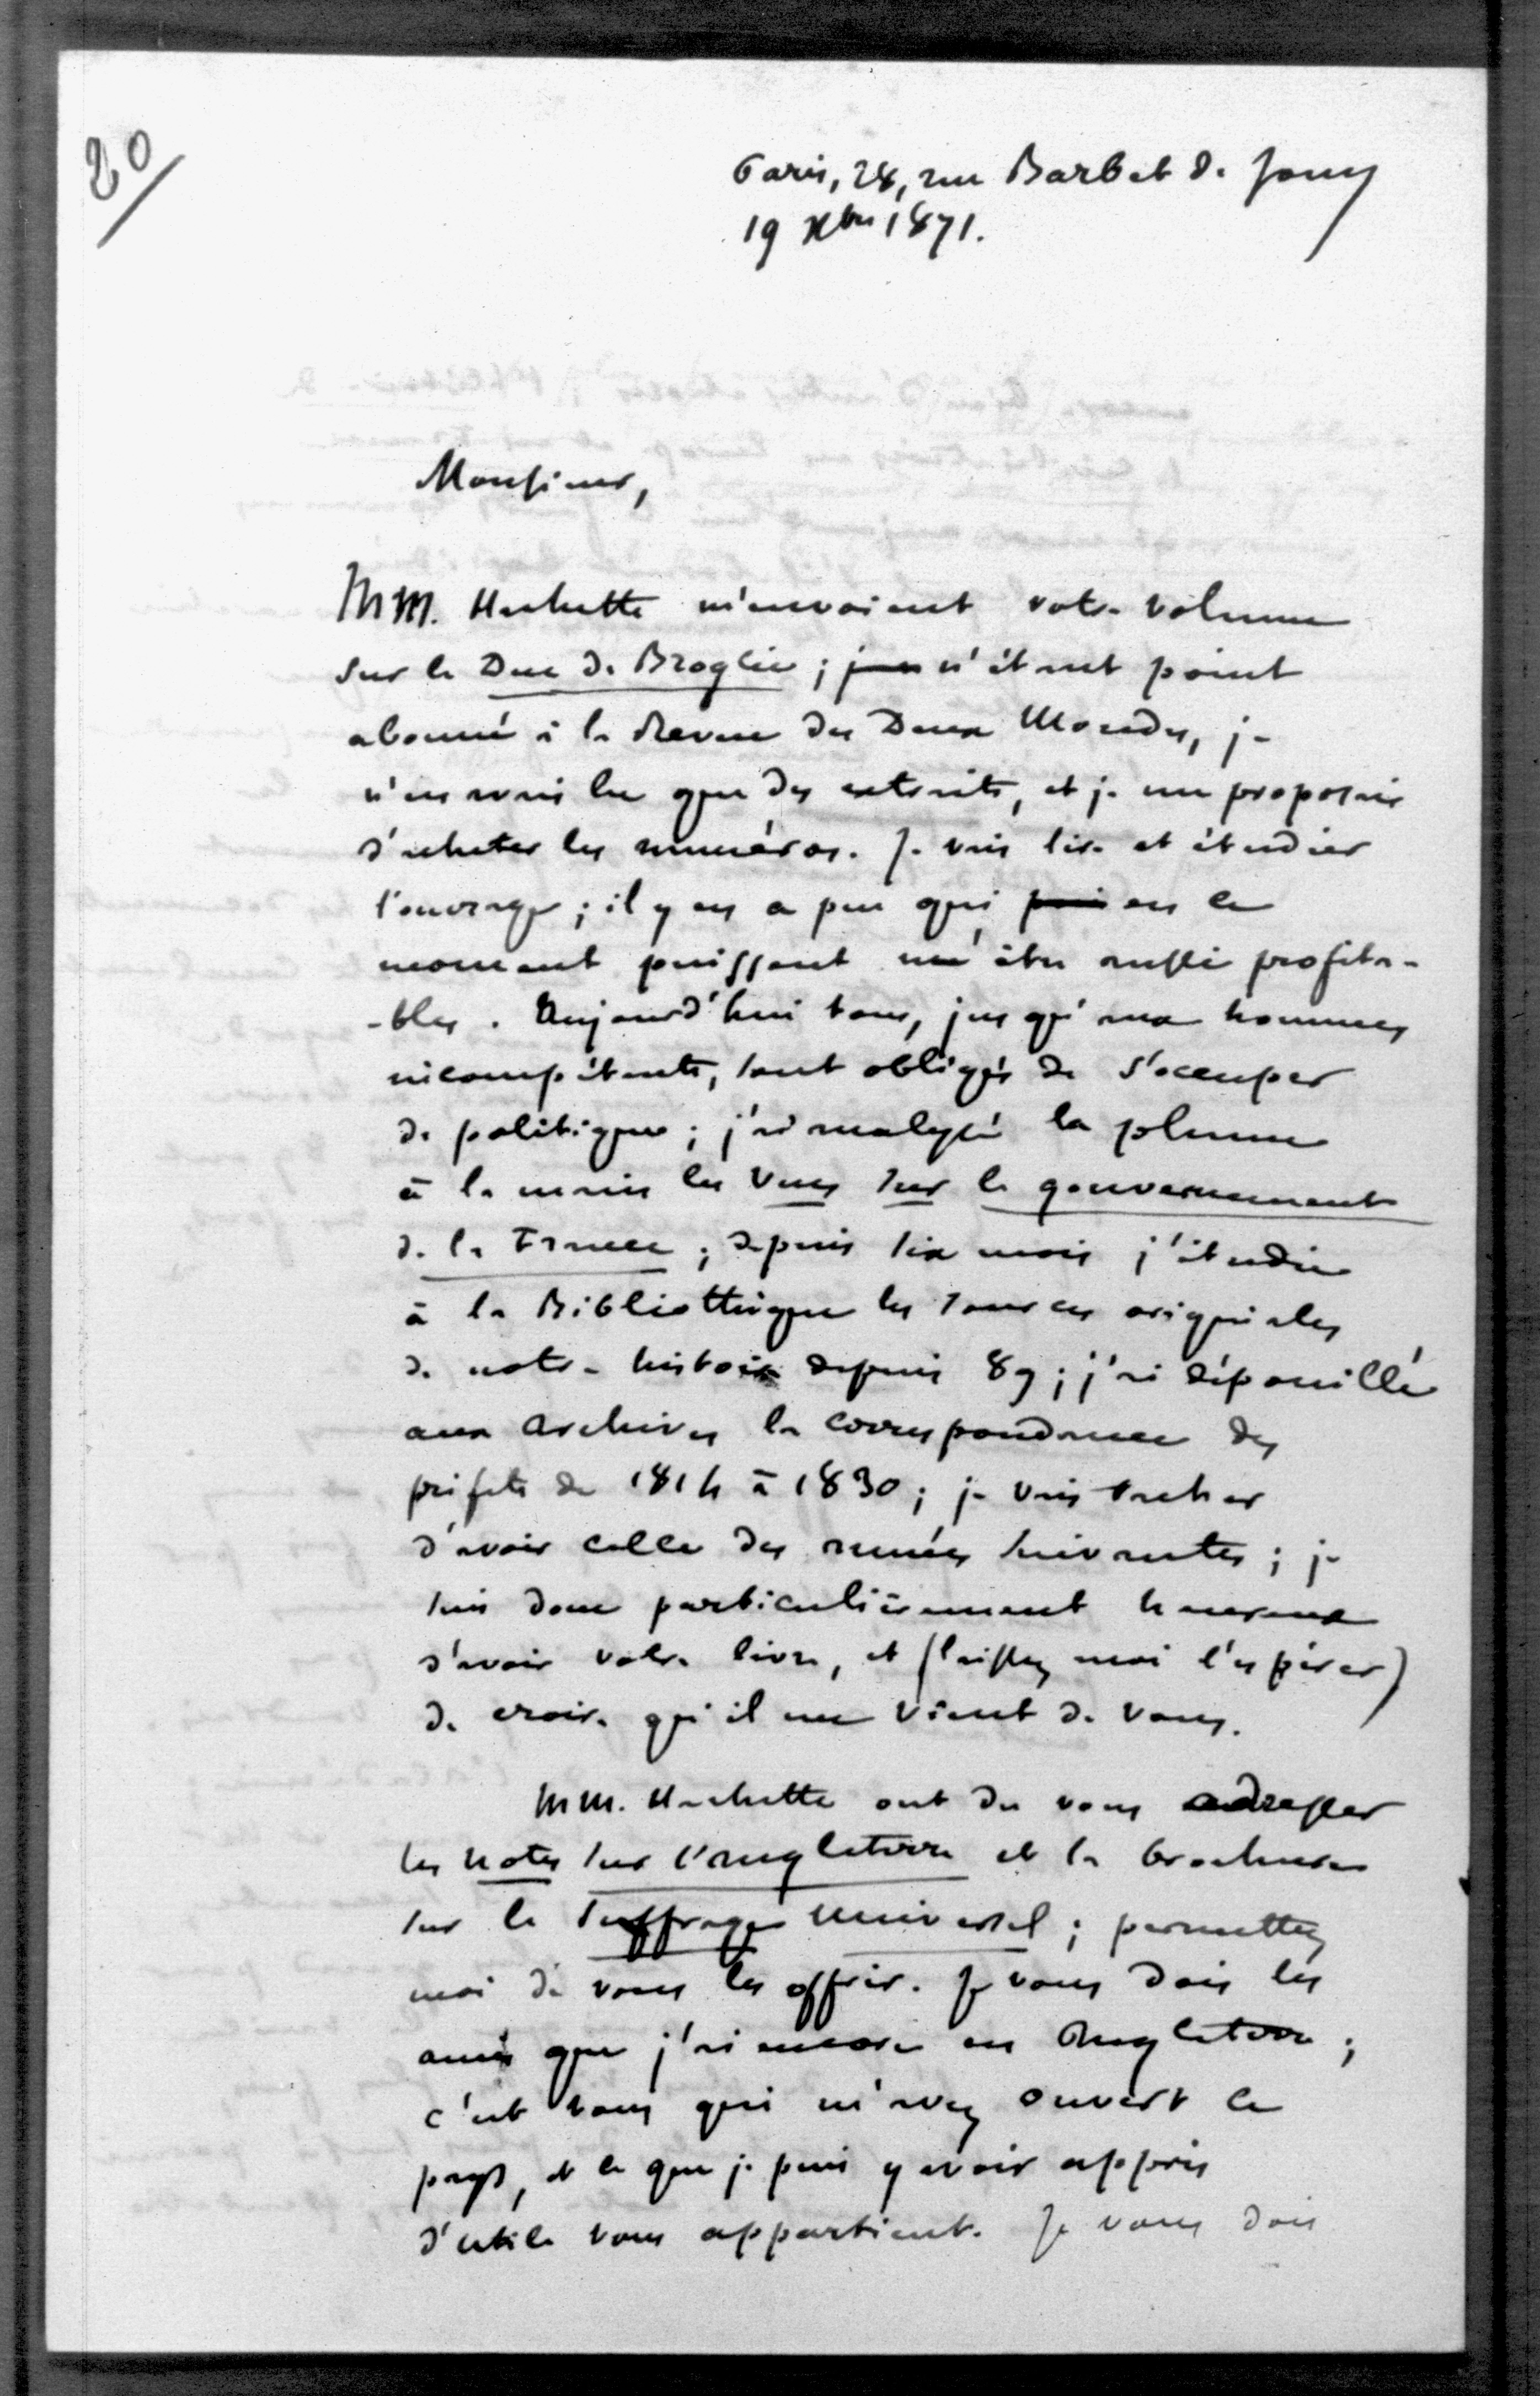 20
Paris, 28, rue Barbet de Jouy
19 Xbre 1871.
Monsieur,
MM. Hachette m'envoient votre volume
sur le Duc de Broglie ; n'étant point
abonné à la Revue des Deux Mondes, je
n'en avais lu que des extraits, et je me proposais
d'acheter les numéros. Je vais lire et étudier
l'ouvrage ; il y en a peu qui en ce
moment puissent m'être aussi profita-
-bles. Aujourd'hui tous, jusqu'aux hommes
incompétents, sont obligés de s'occuper
de politique ; j'ai analysé la plume
à la main les Vues sur le gouvernement
de la France ; depuis six mois j'étudie
à la Bibliothèque les sources originales
de notre histoire depuis 89 ; j'ai dépouillé
aux archives la correspondance des
préfets de 1814 à 1830 ; je vais tacher
d'avoir celle des années suivantes ; je
suis donc particulièrement heureux
d'avoir votre livre, et (laissez moi l'espérer)
de croire qu'il me vient de vous.
MM. Hachette ont du vous adresser
les Notes sur l'Angleterre et la brochure
sur le Suffrage Universel ; permettez
moi de vous les offrir. Je vous dois les
amis que j'ai encore en Angleterre ;
c'est vous qui m'avez ouvert ce
pays, et ce que je puis y avoir appris
d'utile vous appartient. Je vous dois